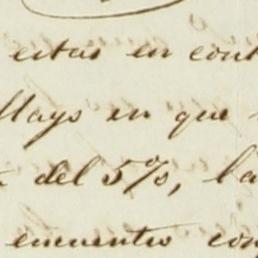 estas en cont
Mayo en que
del 5%, la
encuentro con